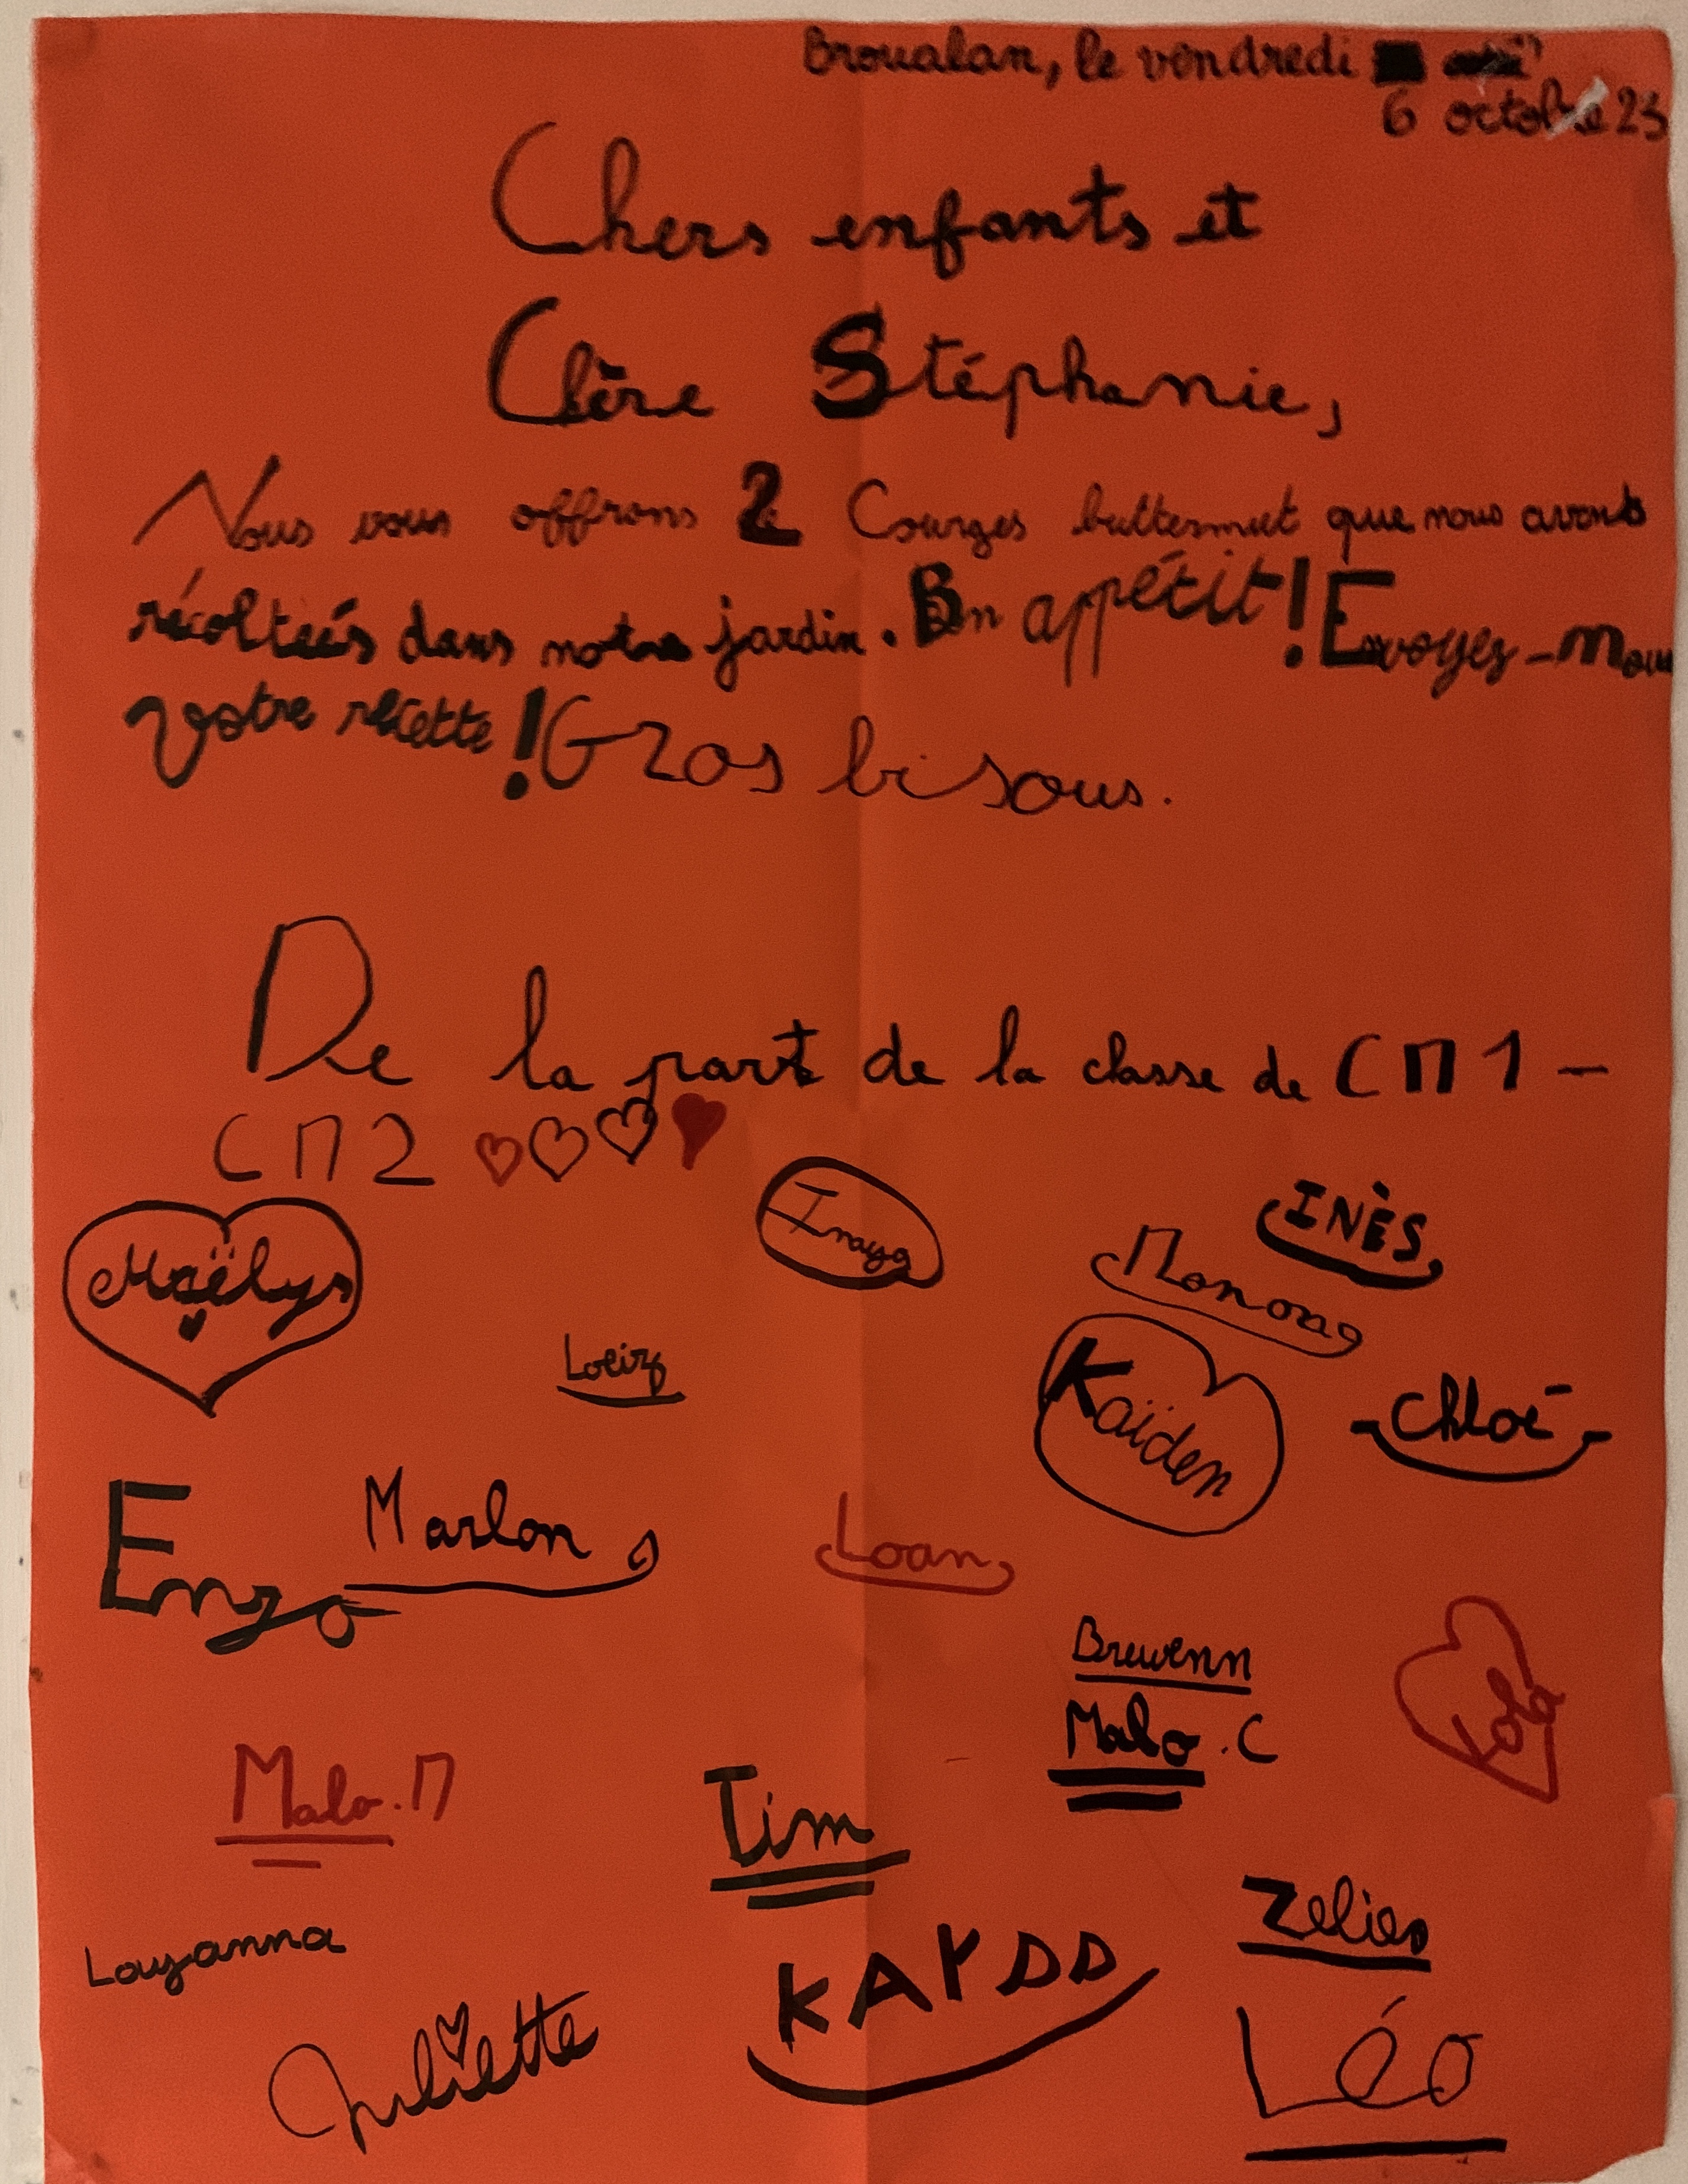 Broualan, le vendredi
6 octobre 23
Chers enfants et
Chère Stéphanie,
Nous vous offrons 2 Courges butternut que nous avons
récoltées dans notre jardin. Bon appétit ! Envoyez-nous
votre recette ! Gros bisous.
De la part de la classe de CM1-
CM2
INÈS
Inaya
Maëlys
Loeiz
Kaïden
Chloé
Marlon
Enzo
Loan
Brewenn
Lola
Malo.C
Malo.M
Tim
Zelie
Louanna
KAYDD
Juliette
Léo